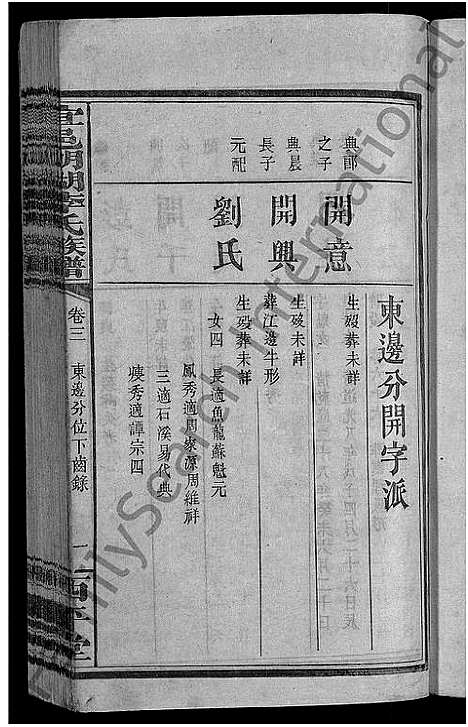 東邊分開字派
典郎之子
開意
生歿葬未詳
典晨長子
開興
生歿未詳
葬江邊牛形
元配
劉氏
生歿葬未詳
女四 長適魚龍蘇魁元
鳳秀適周家源周維祥
三適石溪易代典
瑛秀適譚宗四
宜邑明湖李氏族譜
卷三
東邊分位下齒錄
一
西平堂
FamilySearch International